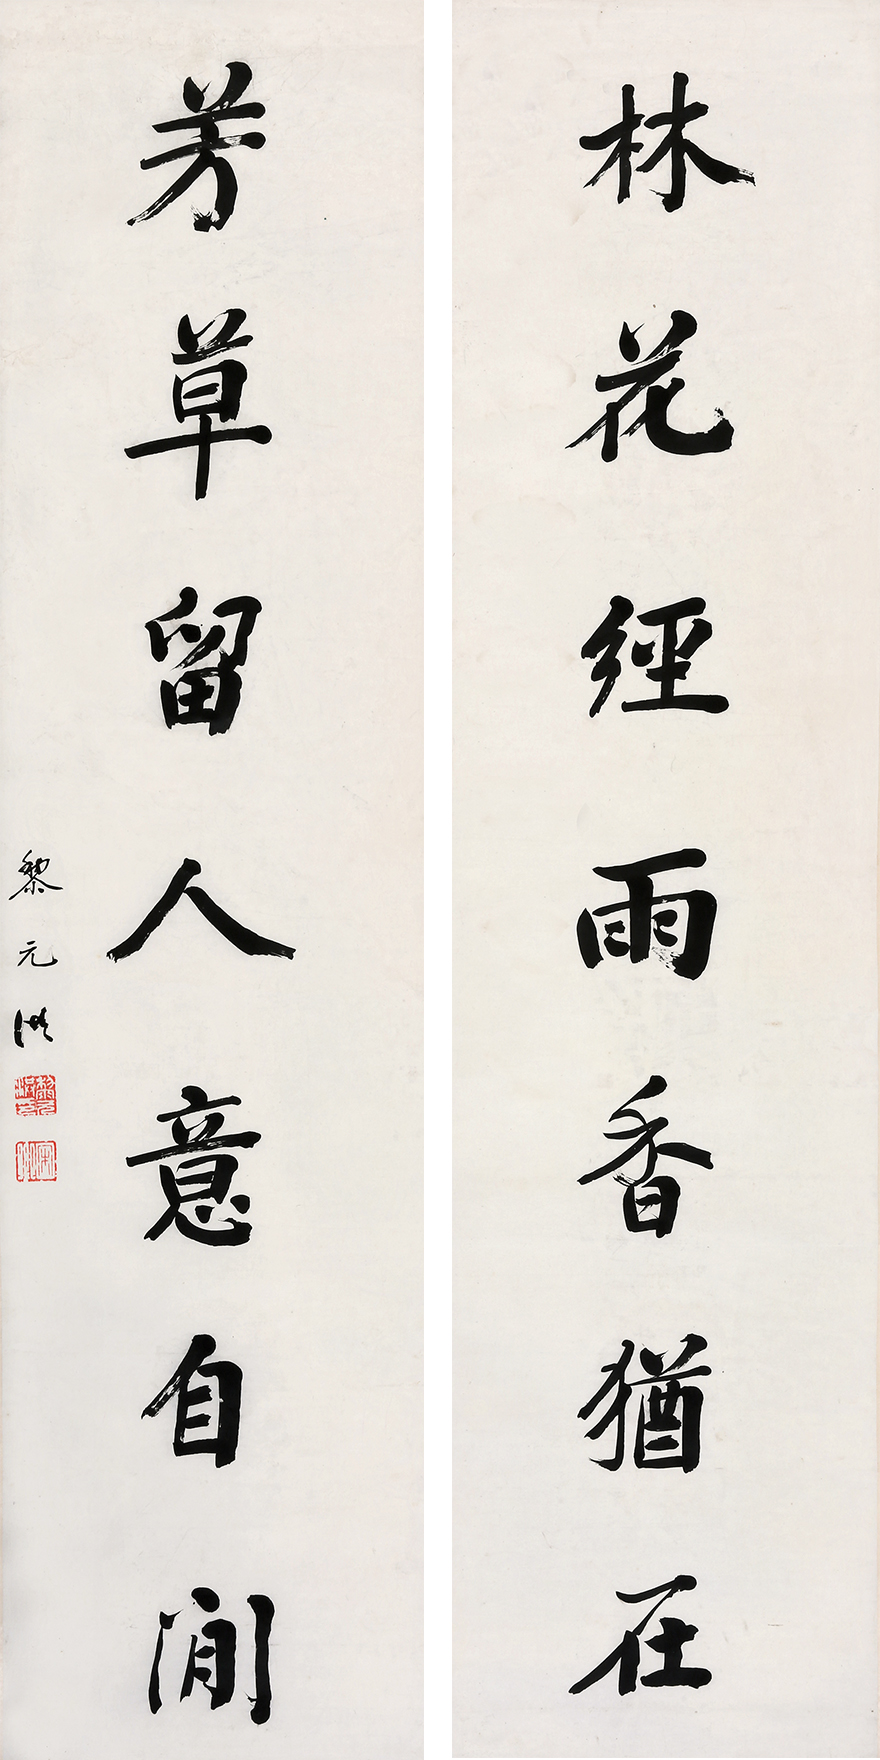 林花經雨香猶在
芳草留人意自閒
黎元洪
黎元洪印